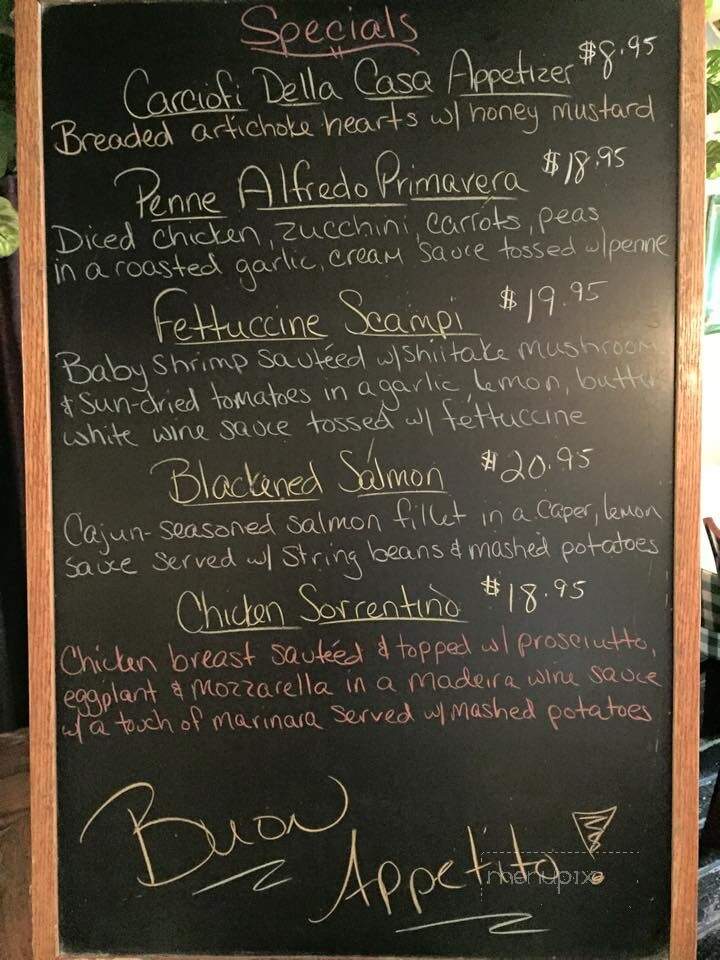 Specials
Carciofi Della Casa Appetizer $8.95
Breaded artichoke hearts w/ honey mustard
Penne Alfredo Primavera $18.95
Diced chicken, zucchini, carrots, peas
in a roasted garlic, cream sauce tossed w/penne
Fettuccine Scampi $19.95
Baby shrimp sautéed w/shiitake mushroom
& sun-dried tomatoes in a garlic, lemon, butter
white wine sauce tossed w/ fettuccine
Blackened Salmon $20.95
Cajun-seasoned salmon fillet in a caper, lemon
sauce served w/ string beans & mashed potatoes
Chicken Sorrentino $18.95
Chicken breast sautéed & topped w/ prosciutto,
eggplant & mozzarella in a madeira wine sauce
w/a touch of marinara served w/mashed potatoes
Buon
Appetito!
menupix